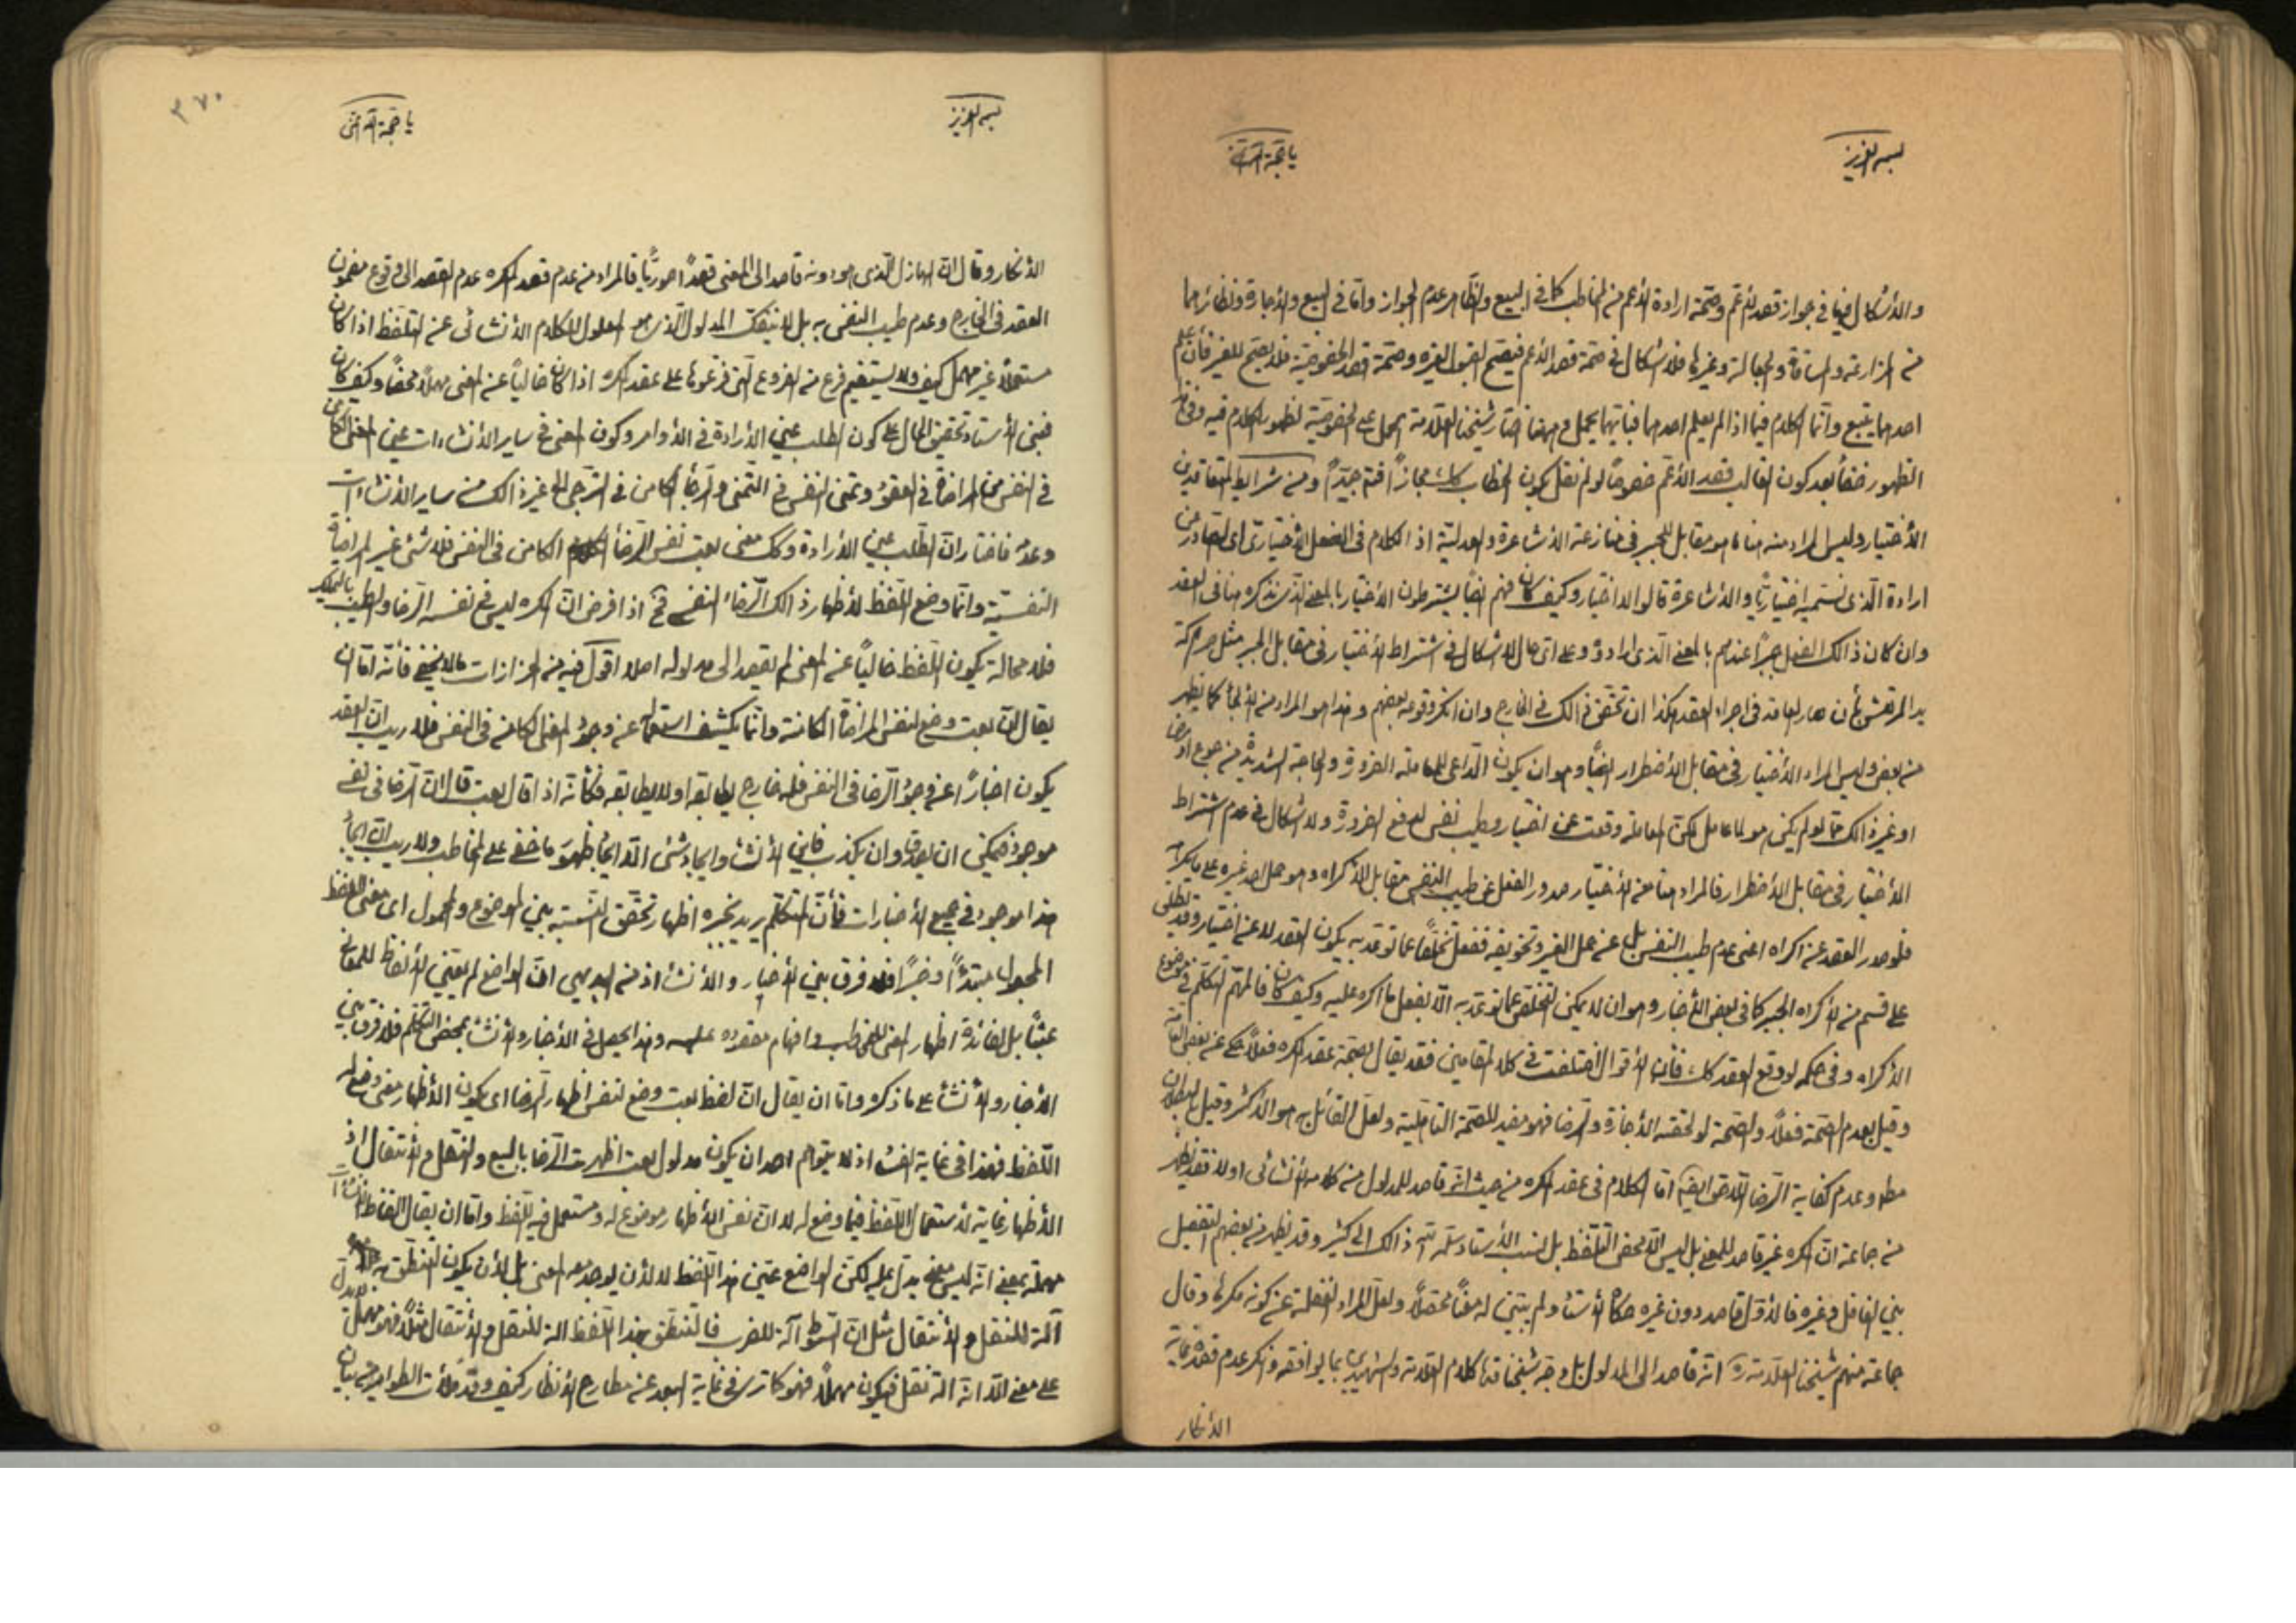 بسمه العزيز
والأشكال فيها في جواز قصد الأعم وصحة ارادة الأعم من المخاطب كما في البيع والظاهر عدم الجواز واما في البيع والأجارة ونظائرهما
من المزارعة والمساقاة والجعالة وغيرها فلا اشكال في صحة قصد الأعم فيصح القبول لغيره وصحة قصد الخصوصية فلا يصح للغير فأن علم
احدهما يتبع وانما الكلام فيما اذا لم يعلم احدهما فبأيهما يحمل فمهنا اختار شيخنا العلامة الحمل على الخصوصية لظهور الكلام فيه وفي
الظهور خفأ بعد كون الغالب قصد الأعم خصوصاً لو لم نقل بكون الخطاب كك مجازاً افتهم جيداً ومن شرايط المتعاقدين
الأختيار وليس المراد منه هنا ما هو مقابل للجبر في منازعة الأشاعرة والعدلية اذ الكلام في الفعل الأختياري اى الصادر من
ارادة الذى نسميه اختيارياً والأشاعرة قالوا لا اختيار وكيف كان فهم ايضاً يشترطون الأختيار بالمعنى الذى نذكره هنا في العقد
وان كان ذالك الفعل جبراً عندهم بالمعنى الذى ارادوه وعلى اى حال لا اشكال في اشتراط الأختيار في مقابل الجبر مثل حركة
يد المرتعش بأن صار العاقد في اجراء العقد هكذا ان تحقق ذالك في الخارج وان انكر وقوعه بعضهم وهذا هو المراد من الألجأ كما يظهر
من بعض وليس المراد الأختيار في مقابل الأضطرار ايضاً وهو ان يكون الداعى للمعاملة الضرورة والحاجة الشديدة من جوع او مرض
او غير ذالك مما لو لم يكن هو لما عامل لكن المعاملة وقعت عن اختيار وطيب نفس لدفع الضرورة ولا اشكال في عدم اشتراط
الأختيار في مقابل الأضطرار فالمراد هنا من الأختيار صدور الفعل عن طيب النفس مقابل الأكراه وهو حمل احد غيره على ما يكرهه
فلو صدر العقد عن اكراه اعنى عدم طيب النفس بل عن حمل الغير وتخويفه ففعل تخلصاً عما توعد به يكون العقد لا عن اختيار وقد يطلق
على قسم من الأكراه الجبر كما في بعض الأخبار وهو ان لا يمكن التخلص عما توعد به الا بفعل ما اكره عليه وكيف كان فالمهم التكلم في موضوع
الأكراه وفي حكمه لو وقع العقد كك فأن الأقوال اختلفت في كلا المقامين فقد يقال بصحة عقد المكره فعلاً حكى عن بعض العامة
وقيل بعدم الصحة فعلاً والصحة لو لحقته الأجازة والرضا فهو مفيد للصحة التأهلية ولعل القائل به هو الأكثر وقيل البطلان
مطلقا وعدم كفاية الرضا اللاحق ايضاً اما الكلام في عقد المكره من حيث انه قاصد للمدلول من كلامه الأنشائى اولا فقد يظهر
من جماعة ان المكره غير قاصد للمعنى بل ليس الا محض التلفظ بل نسب الأستاد سلمه الله ذالك الى كثير وقد يظهر من بعضهم التفصيل
بين الغافل وغيره فالأول قاصد دون غيره حكاه الأستاد ولم يتبين له معناً محصلاً ولعل المراد الغفلة عن كونه مكرهاً وقال
جماعة منهم شيخنا العلامة ره انه قاصد الى المدلول بل وجه شيخنا قده كلام العلامة والشهيدين بما يوافقه وانكر عدم قصده غاية
الأنكار
بسمه العزيز
٣٧٠
الأنكار وقال ان الهازل الذى هو دونه قاصد الى المعنى قصداً صورياً فالمراد من عدم قصد المكره عدم القصد الى وقوع مضمون
العقد في الخارج وعدم طيب النفس به بل لا ينفك المدلول الذى هو المعلول للكلام الأنشائى عن التلفظ اذا كان
مستعملاً غير مهمل كيف ولا يستقيم فرع من الفروع التى فرعوها على عقد المكره اذا كان خالياً عن المعنى مهملاً محضاً وكيف كان
فبنى الأستاد تحقيق الحال على كون الطلب عين الأرادة في الأوامر وكون المعنى في ساير الأنشاءات عين المعنى الكامن
في النفس من المراضاة في العقود وتمنى النفس في التمنى والرجأ الكامن في الترجى الى غير ذالك من ساير الأنشاءات
وعدمه فاختار ان الطلب عين الأرادة وكك معنى بعت نفس الرضأ الكامن في النفس فلا شئ غير المراضاة
النفسية وانما وضع اللفظ لأظهار ذالك الرضأ النفسى فح اذا فرض ان المكره ليس في نفسه الرضا والطيب بالتمليك
فلا محالة يكون اللفظ خالياً عن المعنى لم يقصد الى مدلوله اصلا اقول فيه من الحزازات ما لا يخفى فأنه اما ان
يقال ان بعت وضع لنفس المراضاة الكامنة وانما يكشف استعماله عن وجود المعنى الكامن في النفس فلا ريب ان العقد
يكون اخباراً عن وجود الرضا في النفس فله خارج يطابقه او لا يطابقه فكأنه اذا قال بعت قال ان الرضا في نفسى
موجود فيمكن ان يصدق وان يكذب فاين الأنشأ وايجاد شئ الا ايجاد ظهور ما خفى على المخاطب ولا ريب ان ايجاد
هذا موجود في جميع الأخبارات فأن المتكلم يريد بخبره اظهار تحقق النسبة بين الموضوع والمحمول اى معنى اللفظ
المجعول مبتدأ وخبراً فلا فرق بين الأخبار والأنشأ اذ من البديهى ان الواضع لم يعين الألفاظ للمعانى
عبثاً بل لفائدة اظهار المعنى للمخاطب وافهام مقصوده عليه وهذا يحصل في الأخبار والأنشأ بمحض التكلم فلا فرق بين
الأخبار والأنشأ على ما ذكره واما ان يقال ان لفظ بعت وضع لنفس اظهار الرضا اى يكون الأظهار معنى وضع له
اللفظ فهذا في غاية الفساد اذ لا يتوهم احد ان يكون مدلول بعت اظهرت الرضا بالبيع والنقل والأنتقال اذ
الأظهار غاية لأستعمال اللفظ فيما وضع له لا ان نفس الأظهار موضوع له ومستعمل فيه اللفظ واما ان يقال الفاظ الأنشأات
مهملة بمعنى انه ليس معنى يدل عليه لكن الواضع عين هذا اللفظ لا لأن يوجد معه المعنى بل لأن يكون التنطق به
آلة للنقل والأنتقال مثل ان السوط آلة للضرب فالتنطق بهذا اللفظ الة للنقل والأنتقال مثلاً فهو مهمل لا يدل
على معنى الا انه الة نقل فيكون مهملاً فهو كما ترى في غاية البعد عن مطارح الأنظار كيف وقد ملأت الطوامير من بيان